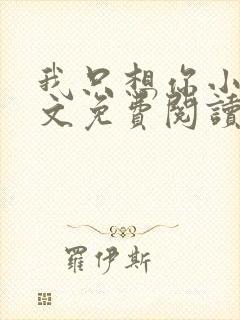 我只想你小
文免費閱讀
羅伊斯